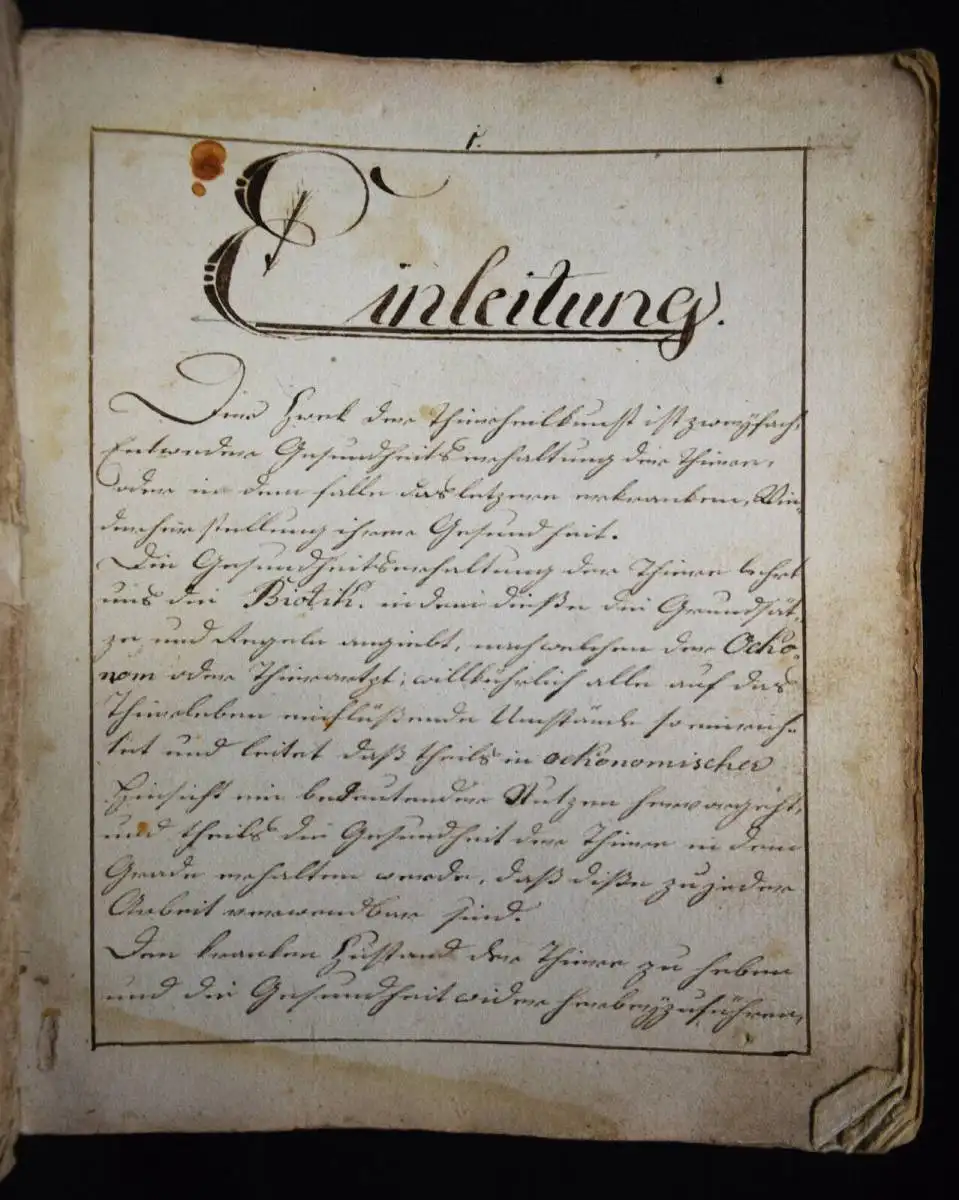 1.
Einleitung.
Der Zwek der Thierheilkunst ist zweÿfach,
Entweder Gesundheitserhaltung der Thiere,
oder in dem falle das letzere erkranken, Wie-
derherstellung ihrer Gesundheit.
Die Gesundheitserhaltung der Thiere lehrt
uns die Biotik. indem dieße die Grundsät-
ze und Regeln angiebt, nach welchen der Oeko-
nom oder Thierartzt, willkührlich alle auf das
Thierleben einflüßende Umstände so einrich-
tet und leitet daß theils in oekonomischer
Hinsicht ein bedeutender Nutzen hervorgeht,
und theils die Gesundheit der Thiere in dem
Grade erhalten werde, daß diße zu jeder
Arbeit verwendbar sind.
Den kranken Zustand der Thiere zu heben
und die Gesundheit wider herbeÿzuführen,